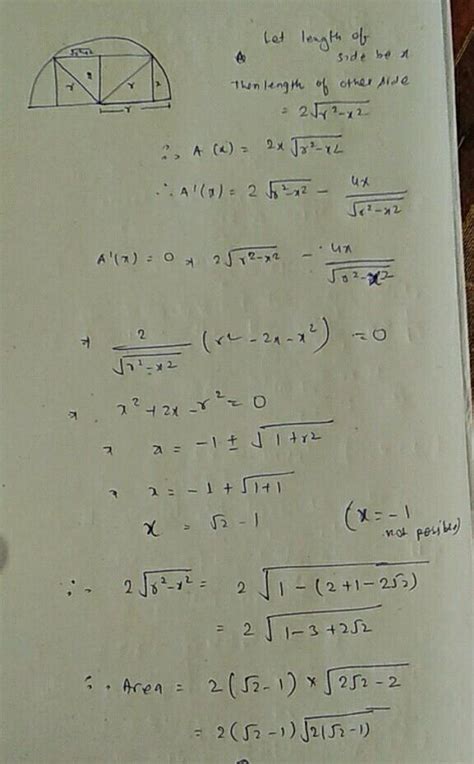 √r²-x²
r 2 r 2
r
Let length of
A side be x
Then length of other side
= 2√r²-x²
∴ A (x) = 2x √r²-x2
∴ A'(x) = 2 √r²-x² - 4x/√r²-x2
A'(x) = 0 ⇒ 2√r²-x² - 4x/√r²-x2
⇒ 2/√r²-x² (r² - 2x - x²) = 0
⇒ x² + 2x - r² = 0
⇒ x = -1 ± √1+r2
⇒ x = -1 + √1+1
x = √2 - 1 (x = -1
not posible)
∴ 2√r²-x² = 2 √1-(2+1-2√2)
= 2 √1-3+2√2
∴ Area = 2(√2-1) × √2√2-2
= 2(√2-1)√2(√2-1)